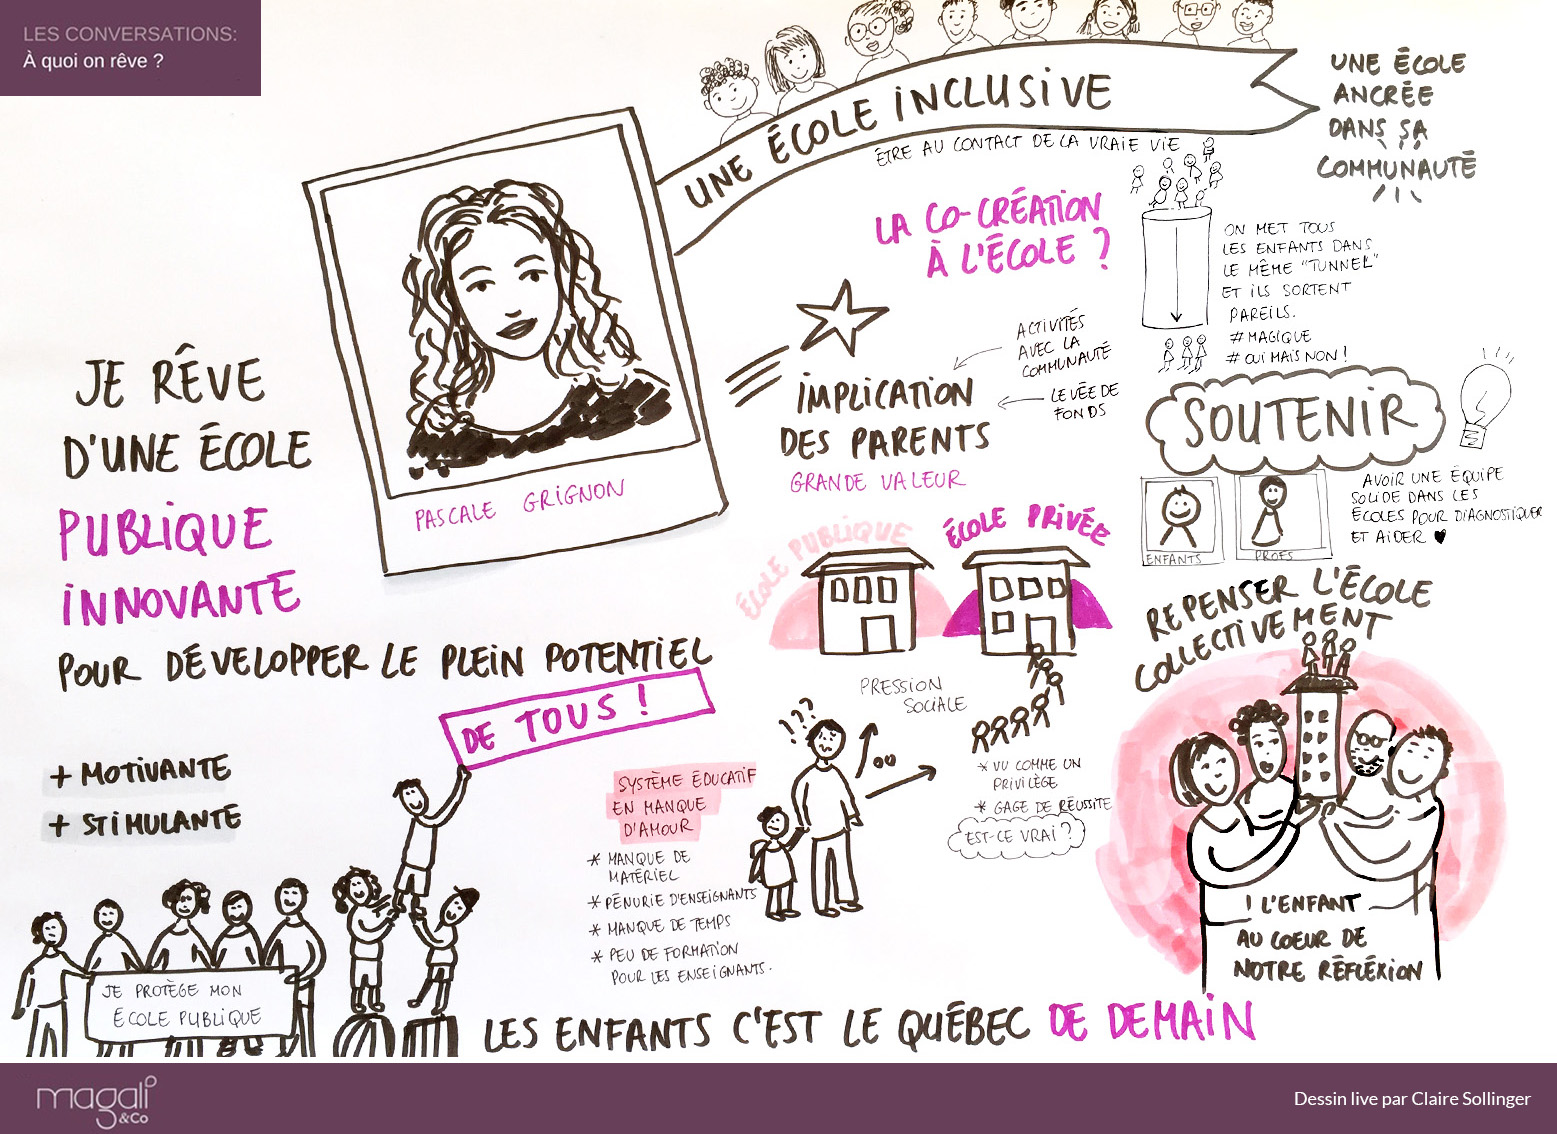 LES CONVERSATIONS:
À quoi on rêve ?
UNE ÉCOLE INCLUSIVE
ÊTRE AU CONTACT DE LA VRAIE VIE
UNE ÉCOLE
ANCRÉE
DANS SA
COMMUNAUTÉ
LA CO-CRÉATION
À L'ÉCOLE ?
ON MET TOUS
LES ENFANTS DANS
LE MÊME "TUNNEL"
ET ILS SORTENT
PAREILS.
#MAGIQUE
#OUI MAIS NON!
JE RÊVE
D'UNE ÉCOLE
PUBLIQUE
INNOVANTE
POUR DÉVELOPPER LE PLEIN POTENTIEL
DE TOUS !
PASCALE GRIGNON
ACTIVITÉS
AVEC LA
COMMUNAUTÉ
LEVÉE DE
FONDS
IMPLICATION
DES PARENTS
GRANDE VALEUR
SOUTENIR
ENFANTS
PROFS
AVOIR UNE ÉQUIPE
SOLIDE DANS LES
ÉCOLES POUR DIAGNOSTIQUER
ET AIDER ♥
ÉCOLE PUBLIQUE
ÉCOLE PRIVÉE
PRESSION
SOCIALE
???
* VU COMME UN
PRIVILÈGE
* GAGE DE RÉUSSITE
EST-CE VRAI ?
REPENSER L'ÉCOLE
COLLECTIVEMENT
! L'ENFANT
AU COEUR DE
NOTRE RÉFLÉXION
+ MOTIVANTE
+ STIMULANTE
SYSTÈME ÉDUCATIF
EN MANQUE
D'AMOUR
* MANQUE DE
MATÉRIEL
* PÉNURIE D'ENSEIGNANTS
* MANQUE DE TEMPS
* PEU DE FORMATION
POUR LES ENSEIGNANTS.
JE PROTÈGE MON
ÉCOLE PUBLIQUE
LES ENFANTS C'EST LE QUÉBEC DE DEMAIN
magali
&Co
Dessin live par Claire Sollinger